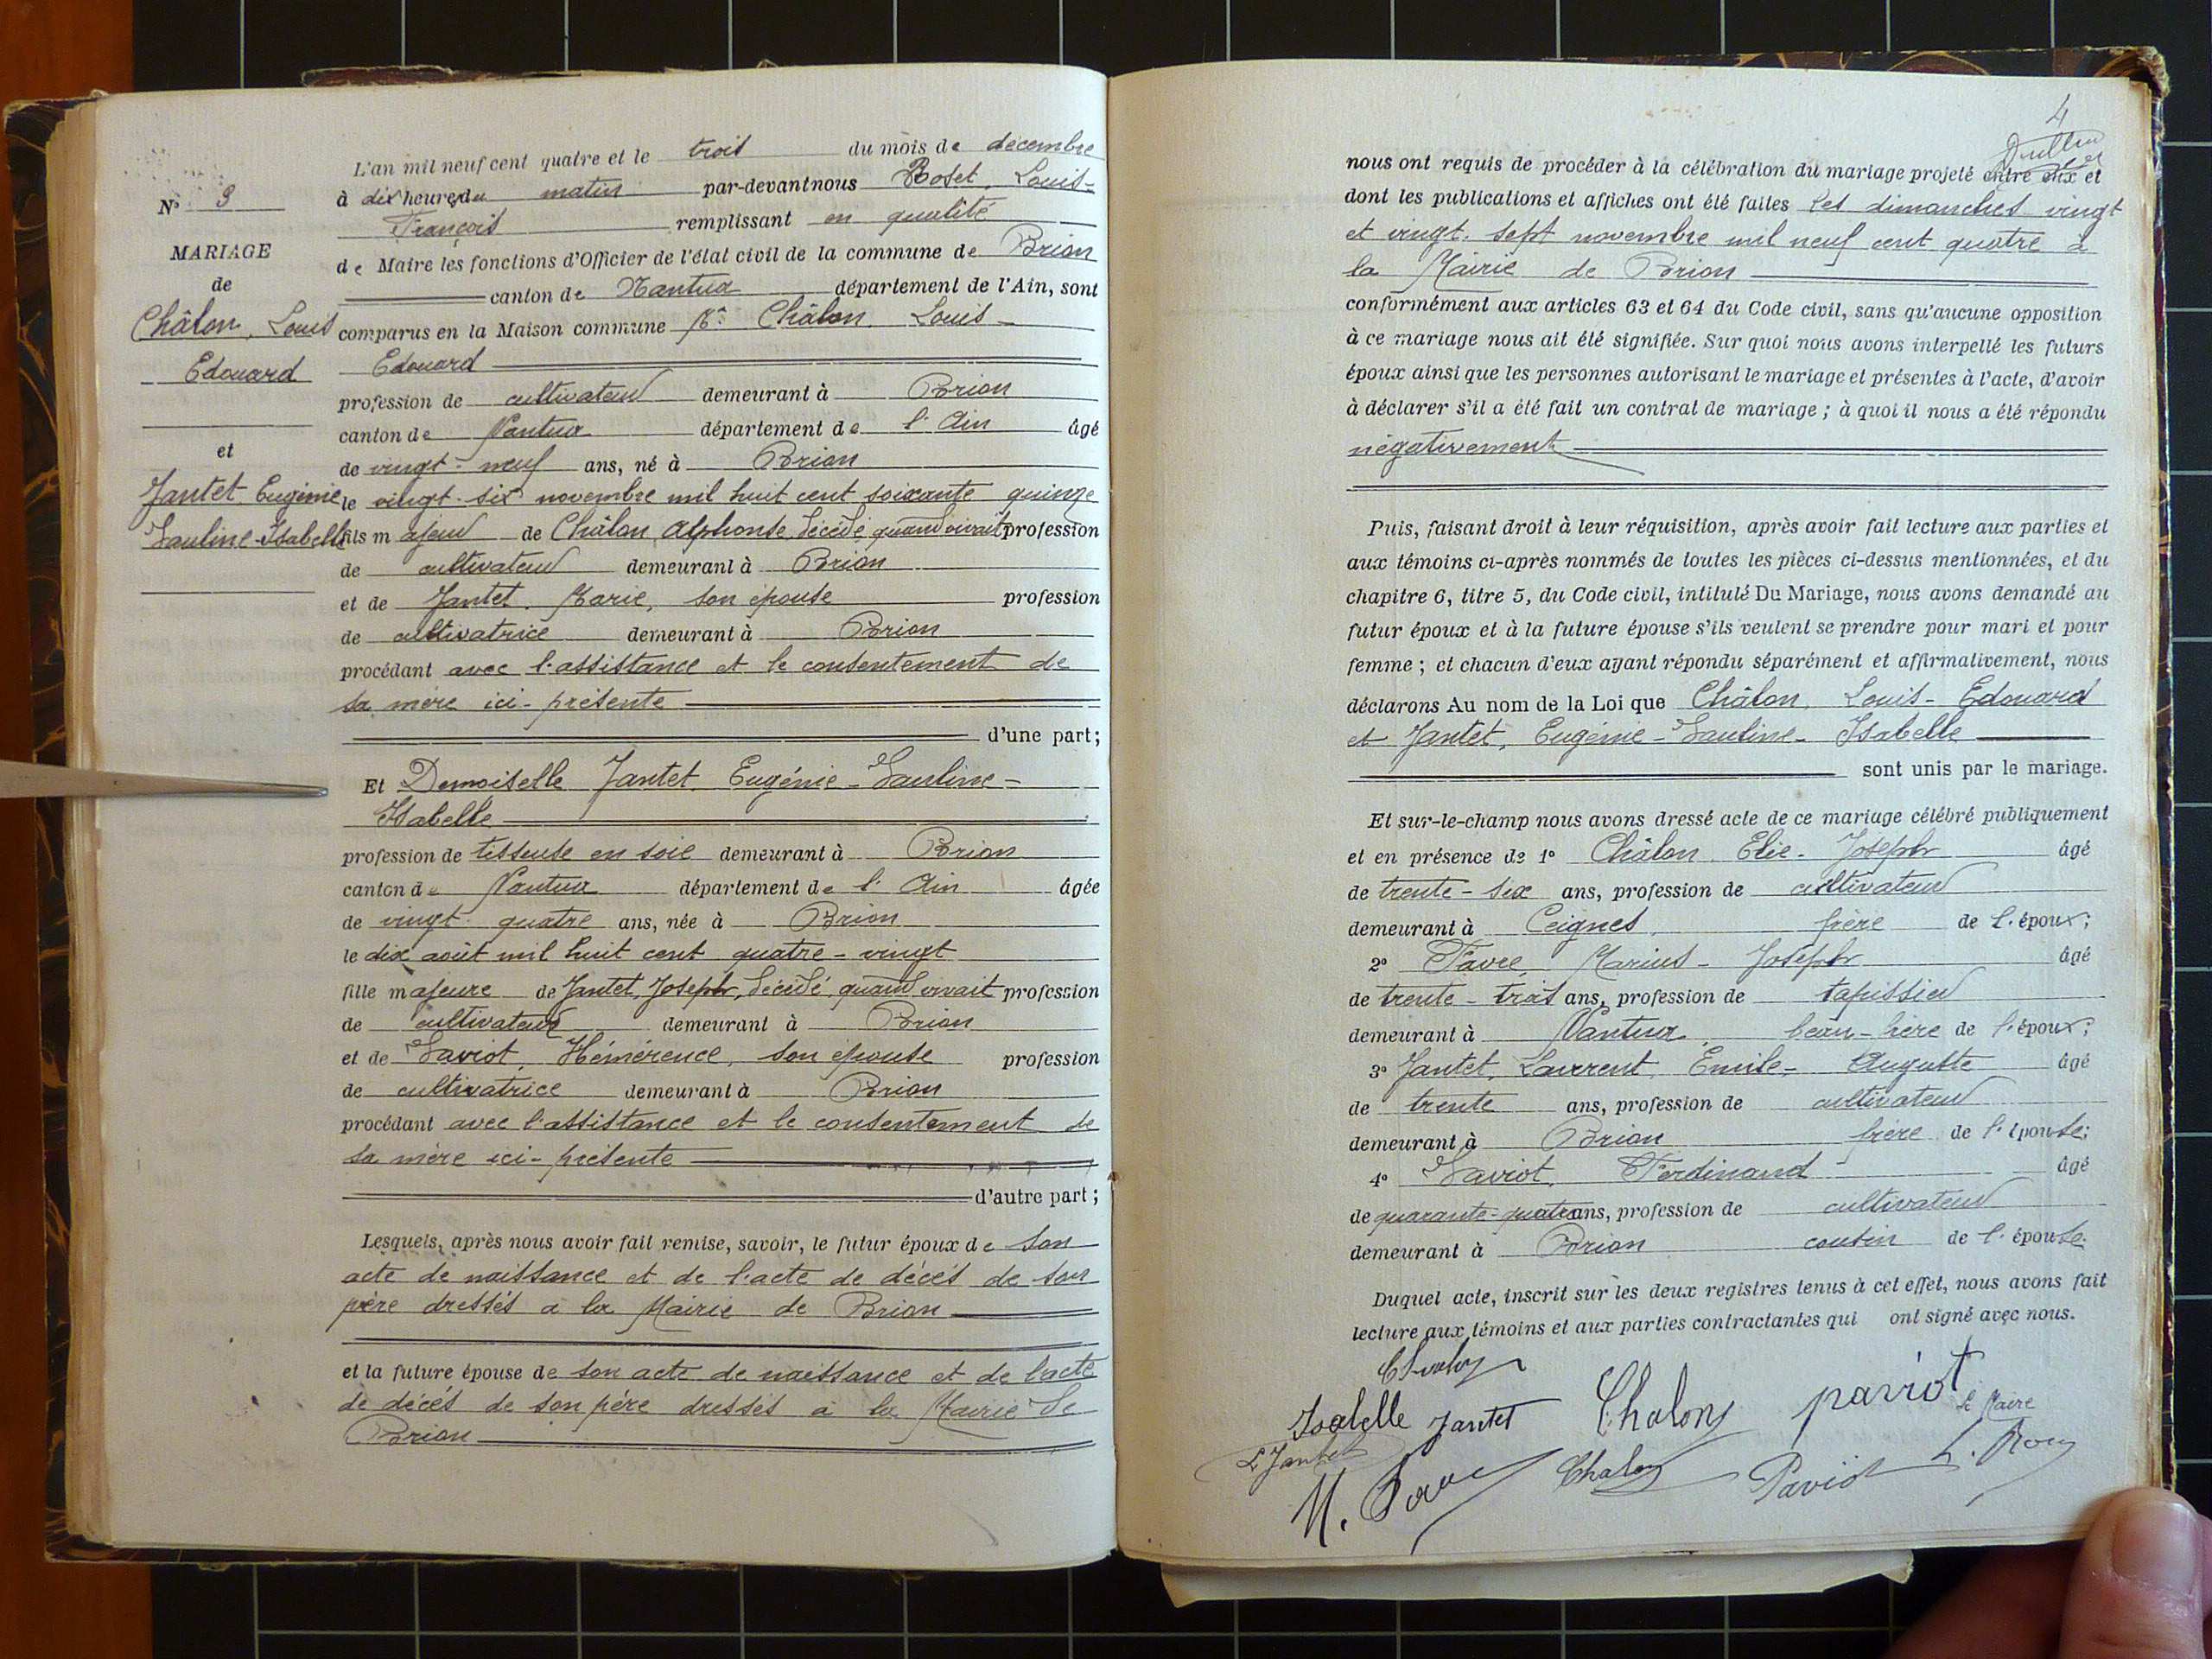 N° 3
MARIAGE
de
Châlon, Louis
Edouard
et
Jantet Eugénie
Pauline-Isabelle
L'an mil neuf cent quatre et le trois du mois de décembre
à dix heures du matin par-devant nous Louis-
François remplissant en qualité
de Maire les fonctions d'Officier de l'état civil de la commune de Brion
canton de Nantua département de l'Ain, sont
comparus en la Maison commune Mr. Châlon Louis-
Edouard
profession de cultivateur demeurant à Brion
canton de Nantua département de l'Ain âgé
de vingt-neuf ans, né à Brion
le vingt-six novembre mil huit cent soixante quinze
fils majeur de Châlon Alphonse, décédé quand vivait profession
de cultivateur demeurant à Brion
et de Jantet, Marie, son épouse profession
de cultivatrice demeurant à Brion
procédant avec l'assistance et le consentement de
sa mère ici-présente
d'une part;
Et Demoiselle Jantet, Eugénie-Pauline-
Isabelle
profession de tisseuse en soie demeurant à Brion
canton de Nantua département de l'Ain âgée
de vingt-quatre ans, née à Brion
le dix août mil huit cent quatre-vingt
fille majeure de Jantet, Joseph, décédé quand vivait profession
de cultivateur demeurant à Brion
et de Paviot, Hémérence, son épouse profession
de cultivatrice demeurant à Brion
procédant avec l'assistance et le consentement de
sa mère ici-présente
d'autre part;
Lesquels, après nous avoir fait remise, savoir, le futur époux de son
acte de naissance et de l'acte de décès de son
père dressés à la Mairie de Brion
et la future épouse de son acte de naissance et de l'acte
de décès de son père dressés à la Mairie de
Brion
4
nous ont requis de procéder à la célébration du mariage projeté entre eux et
dont les publications et affiches ont été faites les dimanches vingt
et vingt-sept novembre mil neuf cent quatre à
la Mairie de Brion
conformément aux articles 63 et 64 du Code civil, sans qu'aucune opposition
à ce mariage nous ait été signifiée. Sur quoi nous avons interpellé les futurs
époux ainsi que les personnes autorisant le mariage et présentes à l'acte, d'avoir
à déclarer s'il a été fait un contrat de mariage; à quoi il nous a été répondu
négativement
Puis, faisant droit à leur réquisition, après avoir fait lecture aux parties et
aux témoins ci-après nommés de toutes les pièces ci-dessus mentionnées, et du
chapitre 6, titre 5, du Code civil, intitulé Du Mariage, nous avons demandé au
futur époux et à la future épouse s'ils veulent se prendre pour mari et pour
femme; et chacun d'eux ayant répondu séparément et affirmativement, nous
déclarons Au nom de la Loi que Châlon, Louis-Edouard
et Jantet, Eugénie-Pauline-Isabelle
sont unis par le mariage.
Et sur-le-champ nous avons dressé acte de ce mariage célébré publiquement
et en présence de 1° Châlon Elie-Joseph âgé
de trente-six ans, profession de cultivateur
demeurant à Ceignes, frère de l'époux;
2° Favre, Marius-Joseph âgé
de trente-trois ans, profession de tapissier
demeurant à Nantua, beau-frère de l'époux;
3° Jantet, Laurent, Emile-Auguste âgé
de trente ans, profession de cultivateur
demeurant à Brion frère de l'épouse;
4° Paviot, Ferdinand âgé
de quarante-quatre ans, profession de cultivateur
demeurant à Brion cousin de l'épouse.
Duquel acte, inscrit sur les deux registres tenus à cet effet, nous avons fait
lecture aux témoins et aux parties contractantes qui ont signé avec nous.
Isabelle Jantet Chalon paviot
Le Maire
L Jantet
Chalon Paviot